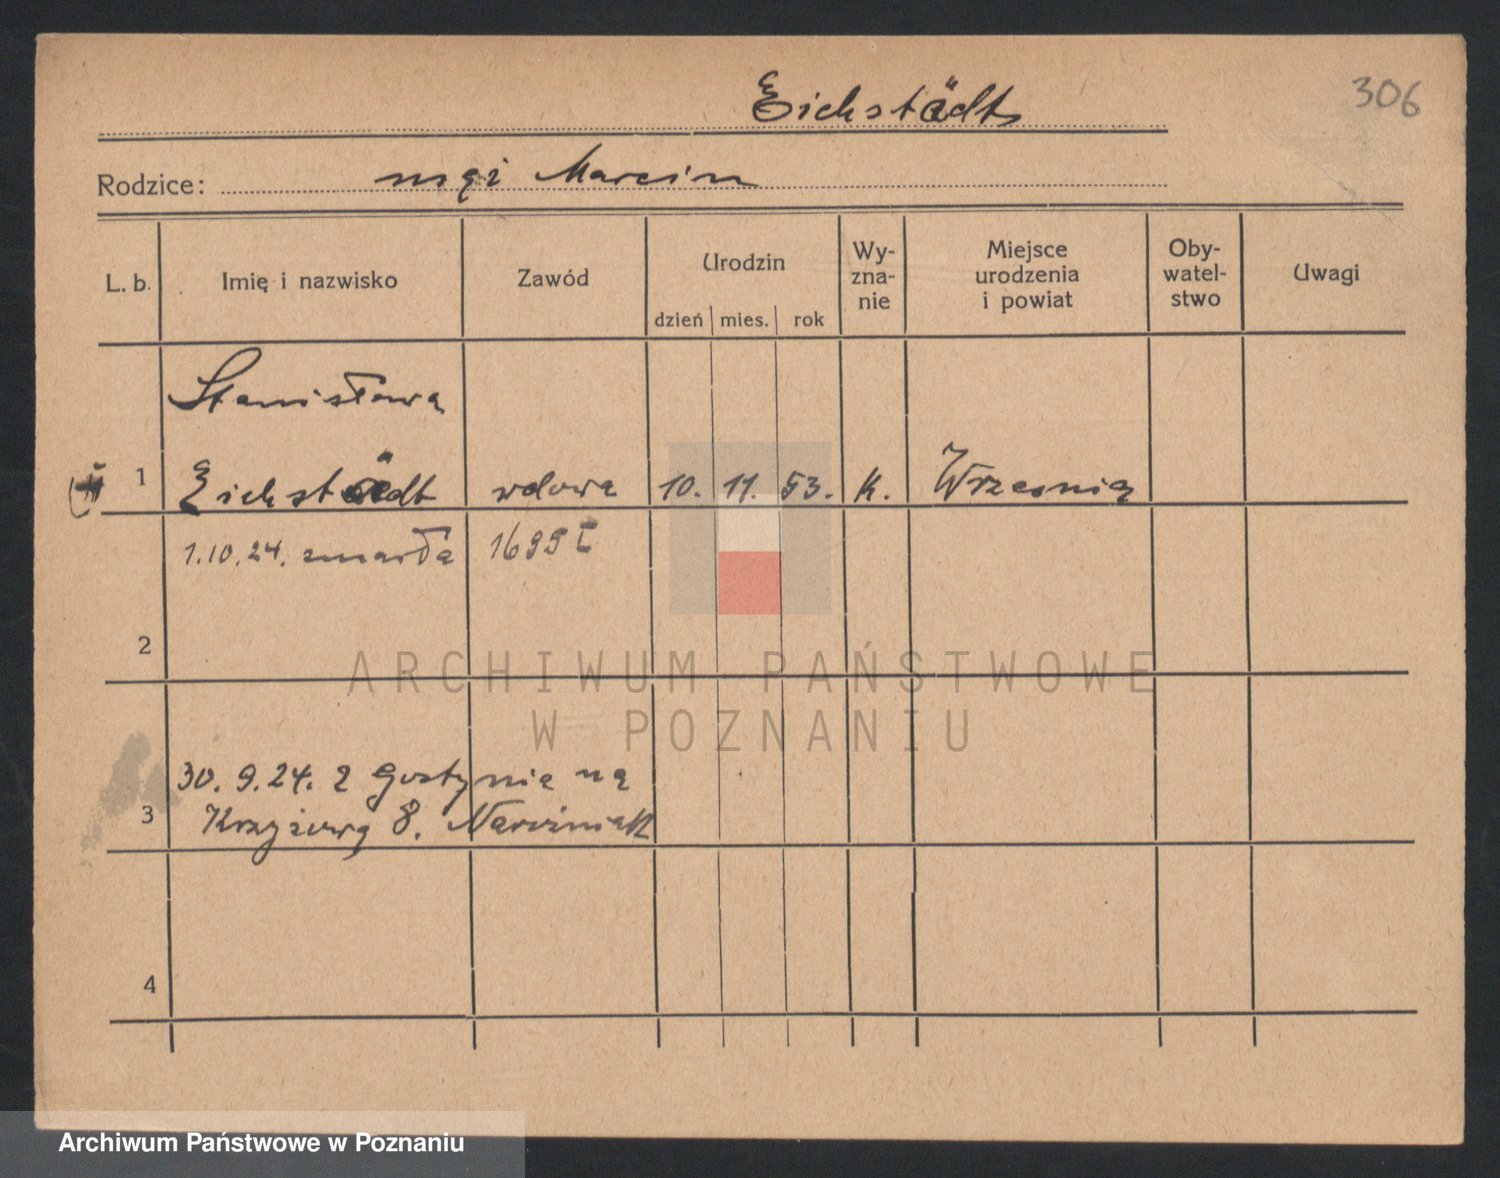 306
Eichstädt
Rodzice: mąż Marcin
L. b. Imię i nazwisko Zawód Urodzin dzień mies. rok Wy-zna-nie Miejsce urodzenia i powiat Oby-watel-stwo Uwagi
Stanisława
1 Eichstädt wdowa 10. 11. 53. K. Września
1.10.24. zmarła
2
ARCHIWUM PAŃSTWOWE
W POZNANIU
30. 9. 24. z Gostynia na
3 Krzyżową 8.
4
Archiwum Państwowe w Poznaniu